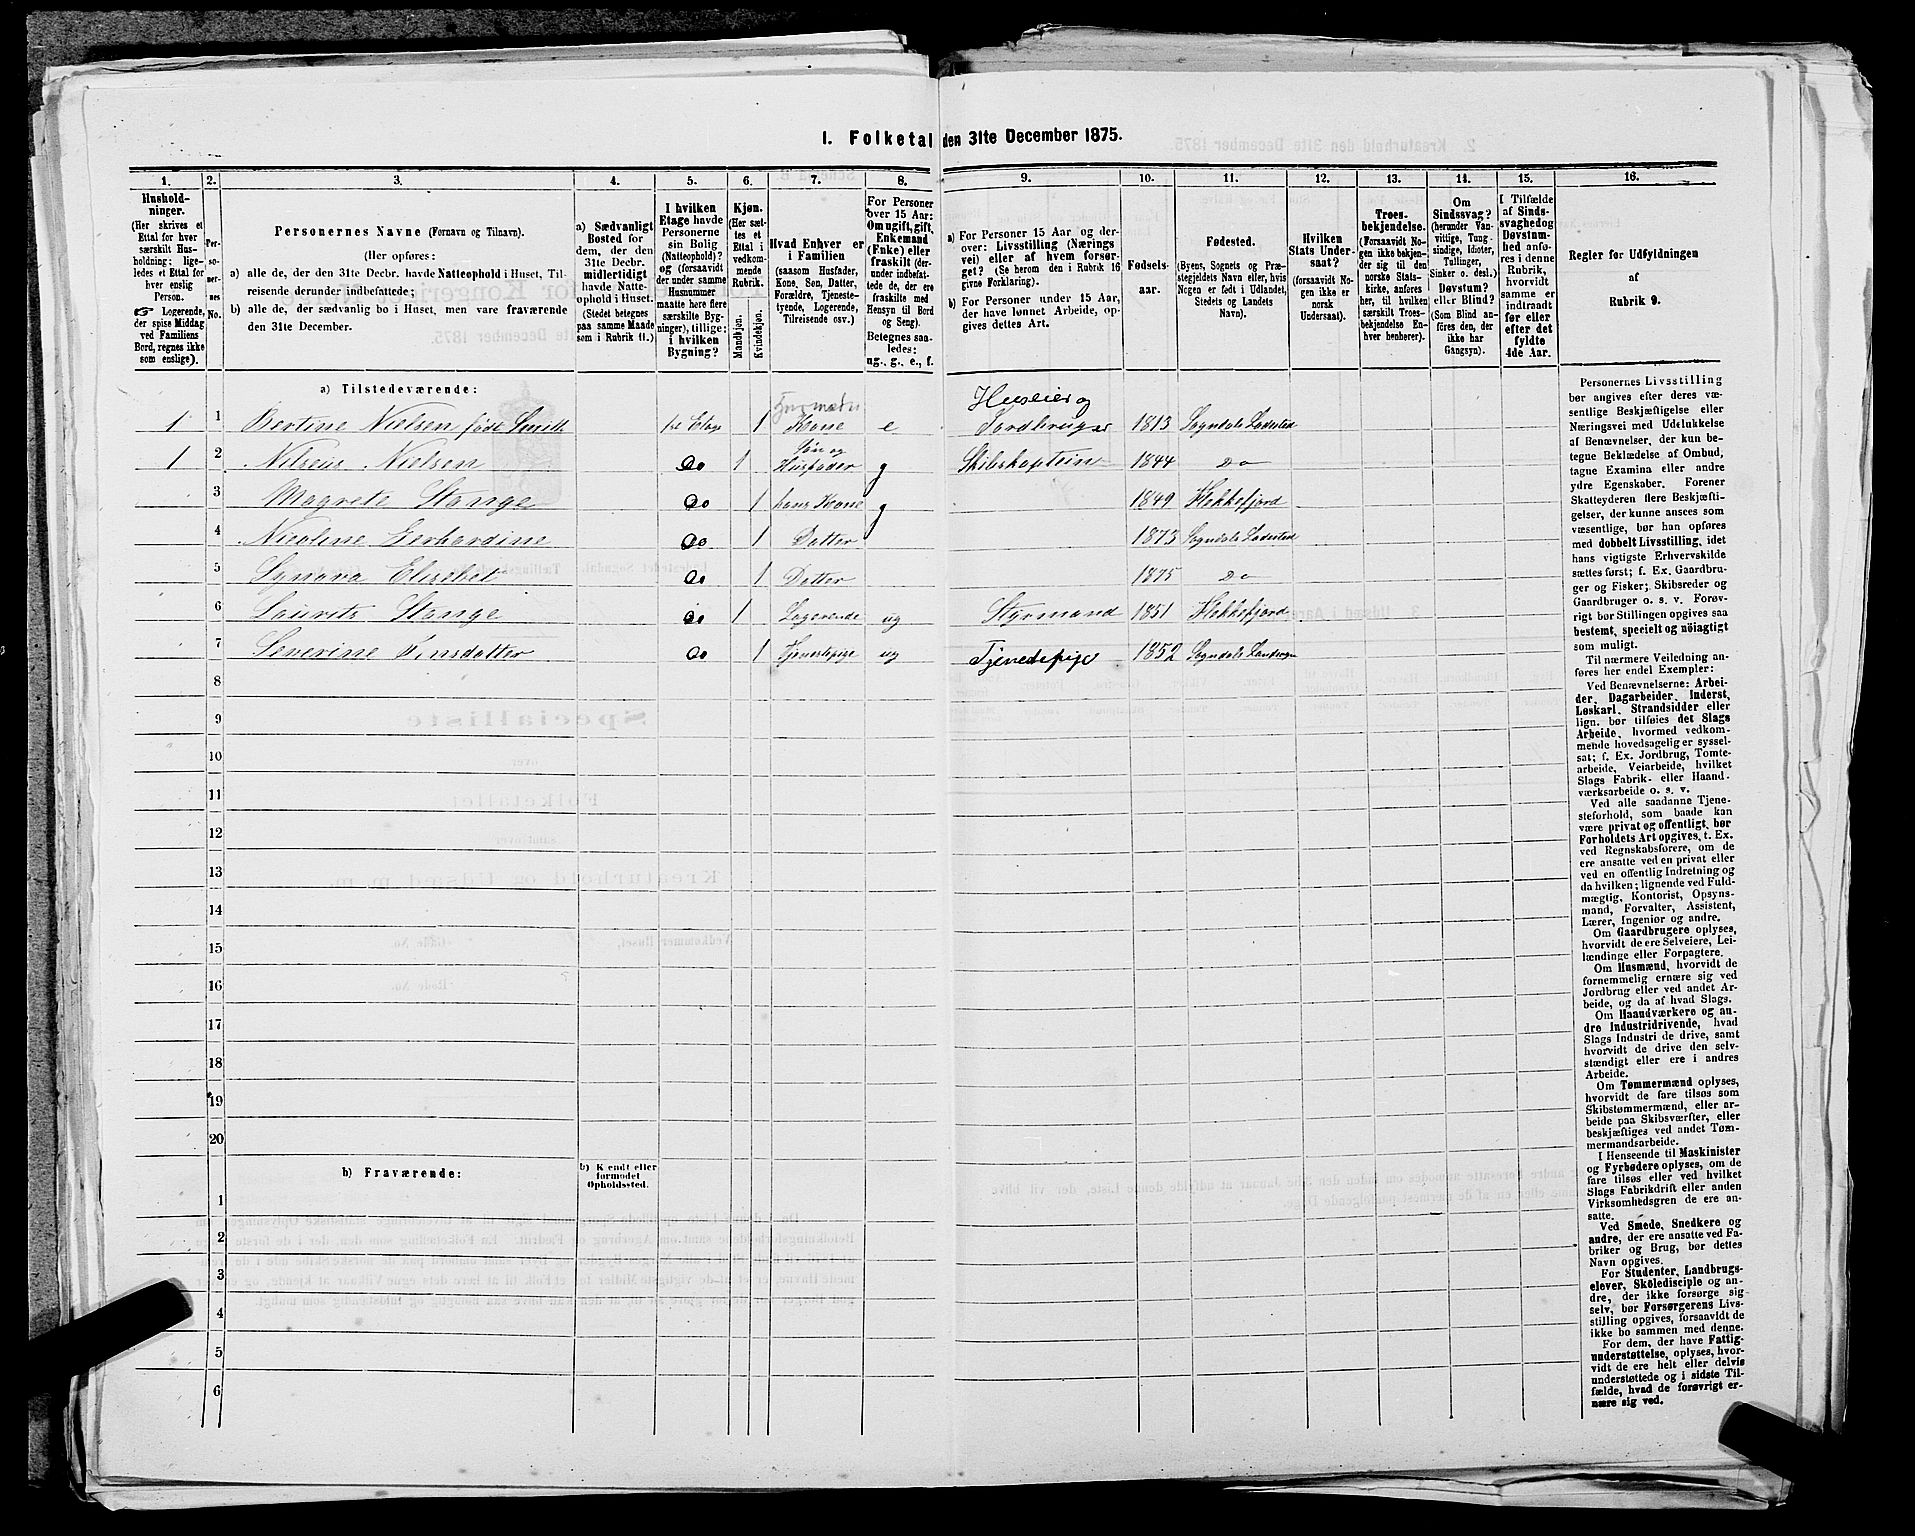 1. Folketal den 31te December 1875.
1. 2. 3. 4. 5. 6. 7. 8. 9. 10. 11. 12. 13. 14. 15. 16.
Husholdninger.
(Her skrives et
Ettal for hver
særskilt Husholdning;
ligeledes et Ettal for
hver enslig
Person.
Logerende,
der spise Middag
ved Familiens
Bord, regnes ikke
som enslige).
Personernes
No.
Personernes Navne (Fornavn og Tilnavn).
(Her opføres:
a) alle de, der den 31te Decbr. havde Natteophold i Huset, Tilreisende
derunder indbefattede;
b) alle de, der sædvanlig bo i Huset, men vare fraværende
den 31te December.
a) Sædvanligt
Bosted for
dem, der den
31te Decbr.
midlertidigt
havde Natteophold
i Huset.
(Stedet betegnes
paa samme Maade
som i Rubrik 11.)
I hvilken
Etage havde
Personerne
sin Bolig
(Natteophold)?
og (forsaavidt
der under samme
Husnummer
maatte høre flere
særskilte Bygninger),
tillige:
i hvilken
Bygning?
Kjøn.
(Her sættes
et
Ettal i
vedkommende
Rubrik.
Mandkjøn.
Kvindekjøn.
Hvad Enhver er
i Familien
(saasom Husfader,
Kone, Søn, Datter,
Forældre, Tjenestetyende,
Logerende,
Tilreisende osv.)
For Personer
over 15 Aar:
Om ugift, gift,
Enkemand
(Enke) eller
fraskilt (derunder
indbefattede
de, der ere
fraskilte med
Hensyn til Bord
og Seng).
Betegnes saaledes:
ug., g., e., f.
a) For Personer 15 Aar og derover:
Livsstilling (Næringsvei)
eller af hvem forsørget?
(Se herom den i Rubrik 16
givne Forklaring).
b) For Personer under 15 Aar,
der have lønnet Arbeide, opgives
dettes Art.
Fødselsaar.
Fødested.
(Byens, Sognets og Præstegjeldets
Navn eller, hvis
Nogen er født i Udlandet,
Stedets og Landets
Navn).
Hvilken
Stats Undersaat?
(forsaavidt Nogen
ikke er
norsk
Undersaat).
Troesbekjendelse.
(Forsaavidt Nogen
ikke bekjender
sig til den
norske Statskirke,
anføres
her, til hvilken
særskilt Troesbekjendelse
Enhver
henhører).
Om
Sindssvag?
(herunder Vanvittige,
Tungsindige,
Idioter,
Tullinger,
Sinker o. desl.)
Døvstum?
eller Blind?
(Som Blind anføres
den, der
ikke har
Gangsyn).
I Tilfælde
af Sindssvaghed
og
Døvstumhed
anføres
i denne
Rubrik,
hvorvidt
samme er
indtraadt
før eller
efter det
fyldte
4de Aar.
Regler for Udfyldningen
af
Rubrik 9.
a) Tilstedeværende:
1 1 Bertine Nielsen født Smith 1ste Etage 1 Kone e Huseier og Jordbruger 1813 Sogndals Ladested
1 2 Nilseus Nielsen Do 1 Søn og Husfader g Skibskaptein 1844 Do
3 Magrete Stange Do 1 hans Kone g 1849 Flekkefjord
4 Nicoline Gerhardine Do 1 Datter 1873 Sogndals Ladested
5 Synova Elisebet Do 1 Datter 1875 Do
6 Laurits Stange Do 1 Logerende ug Styrmand 1851 Flekkefjord
7 Severine Finsdatter Do 1 Tjenestepige ug Tjenestepige 1852 Sogndals Landsogn
8
9
10
11
12
13
14
15
16
17
18
19
20
b) Fraværende:
b) Kjendt eller
formodet
Opholdssted.
1
2
3
4
5
6
Personernes Livsstilling
bør angives efter deres væsentlige
Beskjæftigelse eller
Næringsvei med Udelukkelse
af Benævnelser, der kun betegne
Beklædelse af Ombud,
tagne Examina eller andre
ydre Egenskaber. Forener
Skatteyderen flere Beskjæftigelser,
der kunne ansees som
væsentlige, bør han opføres
med dobbelt Livsstilling, idet
hans vigtigste Erhvervskilde
sættes først; f. Ex. Gaardbruger
og Fisker; Skibsreder og
Gaardbruger o. s. v. Forøvrigt
bør Stillingen opgives saa
bestemt, specielt og nøiagtigt
som muligt.
Til nærmere Veiledning anføres
her endel Exempler:
Ved Benævnelserne: Arbeider,
Dagarbeider, Inderst,
Løskarl, Strandsidder eller
lign. bør tilføies det Slags
Arbeide, hvormed vedkommende
hovedsagelig er sysselsat;
f. Ex. Jordbrug, Tomtearbeide,
Veiarbeide, hvilket
Slags Fabrik- eller Haandværksarbeide
o. s. v.
Ved alle saadanne Tjenesteforhold,
som baade kan
være privat og offentligt, bør
Forholdets Art opgives, t. Ex.
ved Regnskabsførere, om de
ere ansatte ved en privat eller
ved en offentlig Indretning og
da hvilken; lignende ved Fuldmægtig,
Kontorist, Opsynsmand,
Forvalter, Assistent,
Lærer, Ingeniør og andre.
Om Gaardbrugere oplyses,
hvorvidt de ere Selveiere, Leilændinge
eller Forpagtere.
Om Husmænd, hvorvidt de
fornemmelig ernære sig ved
Jordbrug eller ved andet Arbeide,
og da af hvad Slags.
Om Haandværkere og andre
Industridrivende, hvad
Slags Industri de drive, samt
hvorvidt de drive den selvstændigt
eller ere i andres
Arbeide.
Om Tømmermænd oplyses,
hvorvidt de fare tilsøs som
Skibstømmermænd, eller arbeide
paa Skibsværfter, eller
beskjæftiges ved andet Tømmermandsarbeide.
I Henseende til Maskinister
og Fyrbødere oplyses, om de
fare tilsøs eller ved hvilket
Slags Fabrikdrift eller anden
Virksomhedsgren de ere ansatte.
Ved Smede, Snedkere og
andre, der ere ansatte ved Fabriker
og Brug, bør dettes
Navn opgives.
For Studenter, Landbrugselever,
Skoledisciple og andre,
der ikke forsørge sig
selv, bør Forsørgerens Livsstilling
opgives, forsaavidt de
ikke bo sammen med denne.
For dem, der have Fattigunderstøttelse,
oplyses, hvorvidt
de ere helt eller delvis
understøttede og i sidste Tilfælde,
hvad de forøvrigt ernære
sig ved.